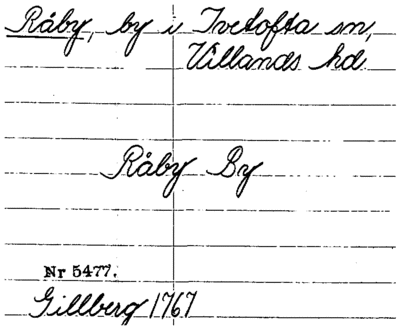 Råby, by i Ivetofta sn,
Villands hd
Råby By
Nr 5477.
Gillberg 1767